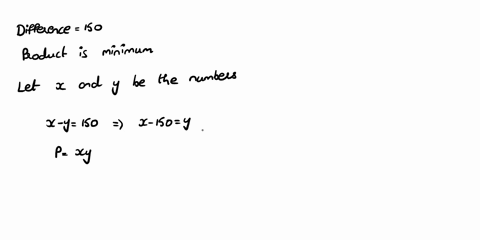 Difference = 150
Product is minimum
Let x and y be the numbers
x-y=150 => x-150=y
P= xy